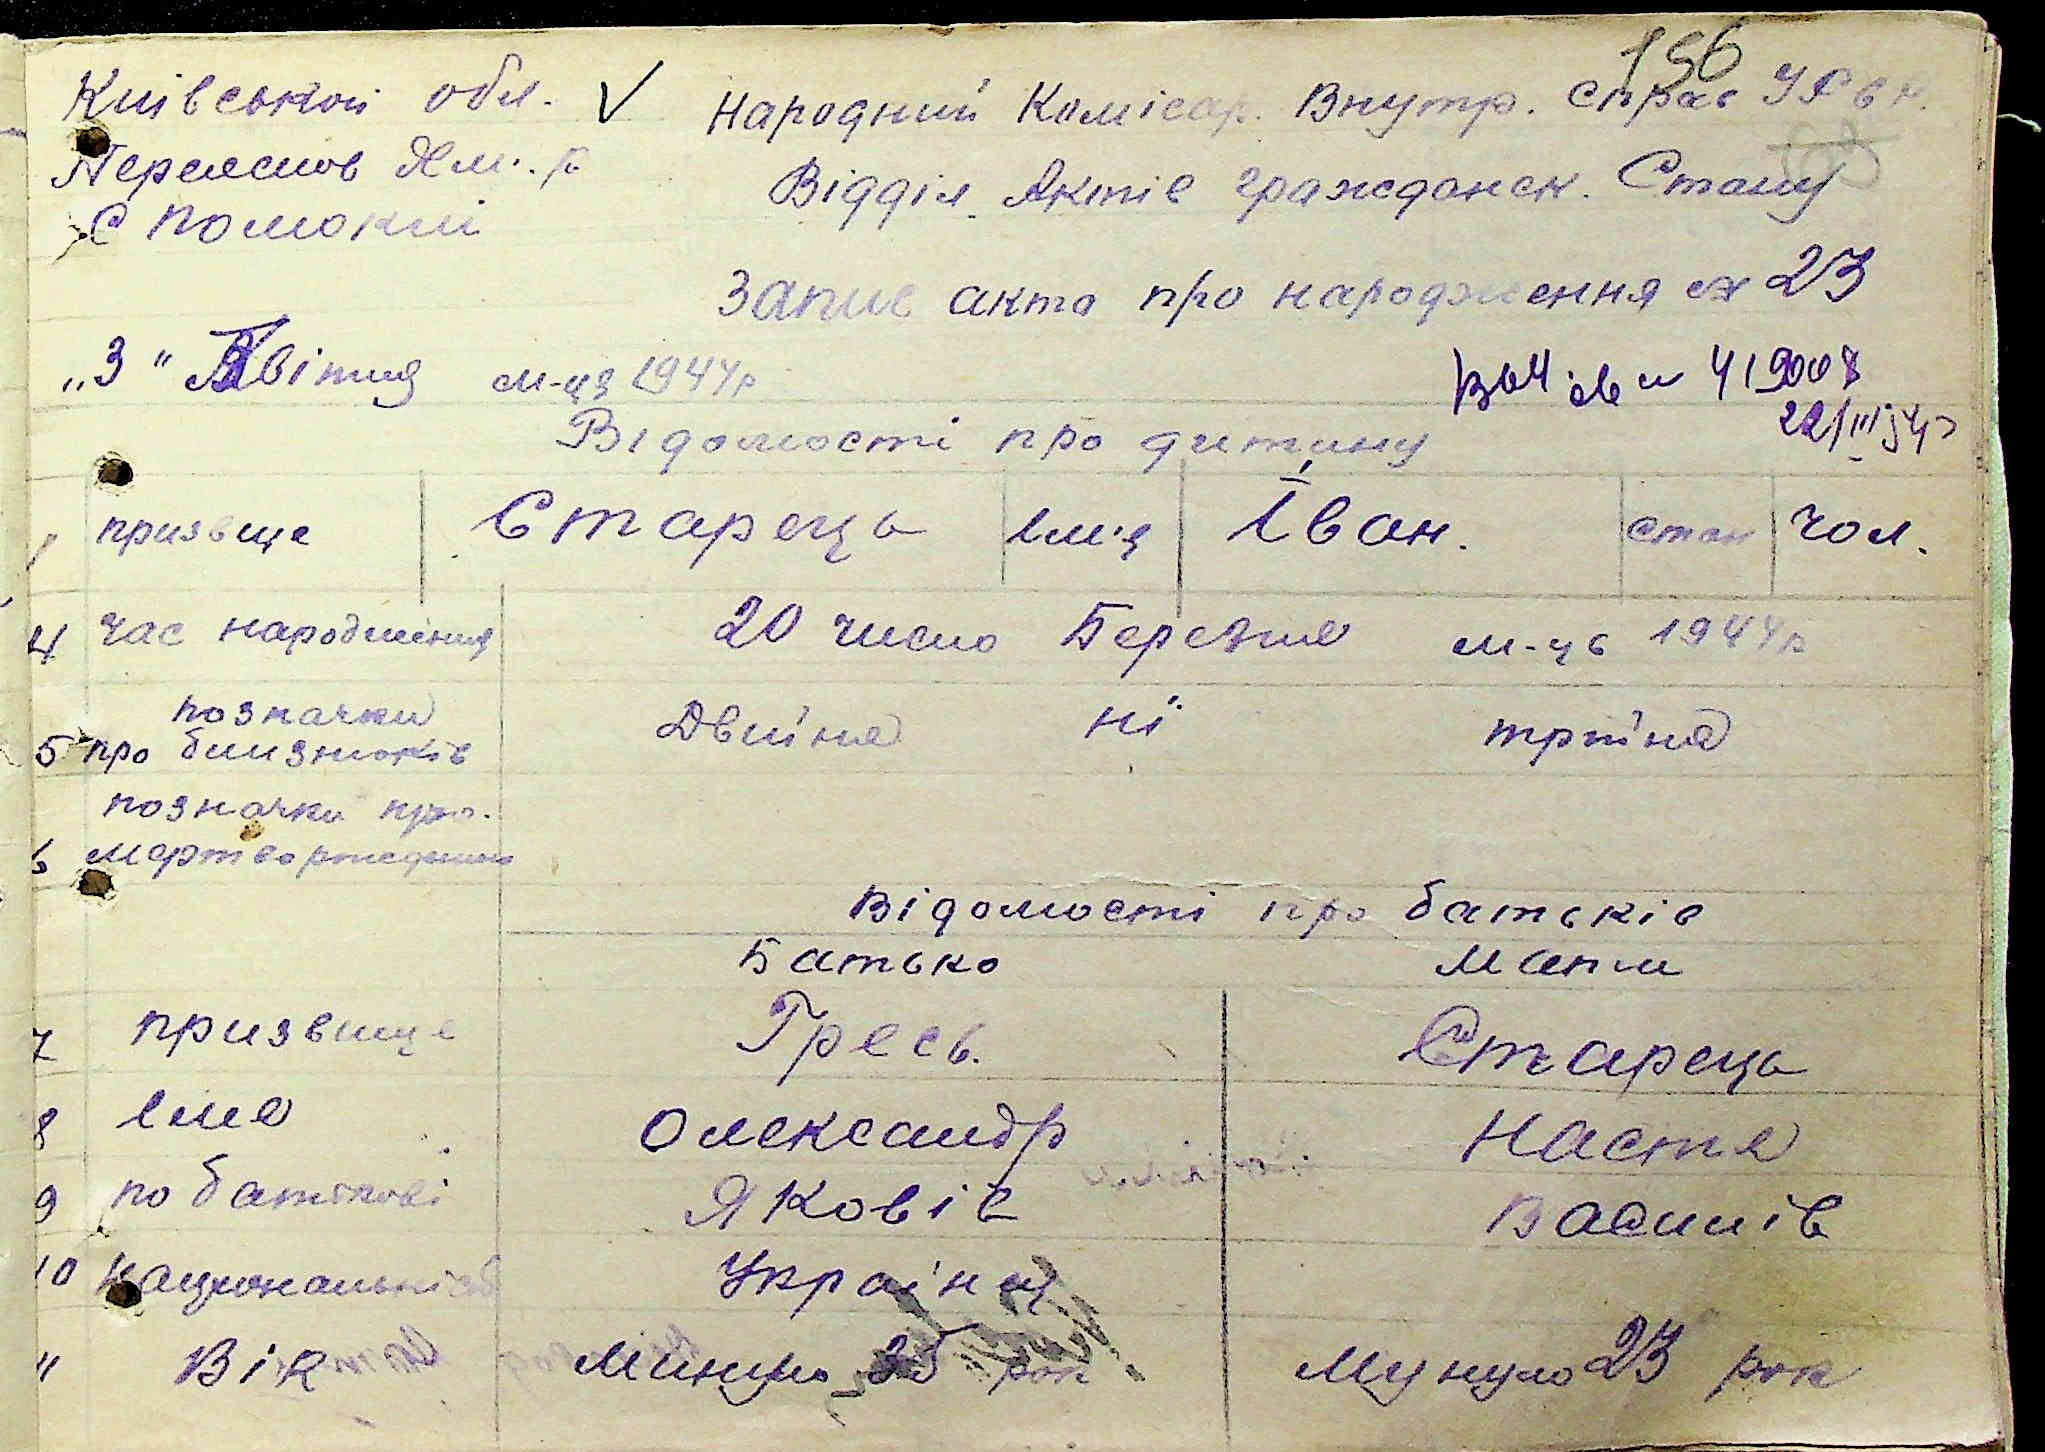 156
Київської обл. V Народний Комісар. Внутр. справ
Переяслов Хм. р
С Помокли
Відділ Актів гражданск. Стану
Запис акта про народження № 23
„3" Квітня м-ця 1944р
419008
22/III 54р
Відомості про дитину
1 призвище Старець Ім'я Іван. стан чол.
4 час народження 20 число Березня м-ць 1944р
5 позначки про близнюків Двийня ні трийня
6 позначки про мертворожденних
Відомості про батьків
Батько Мати
7 призвище Гресь. Старець
8 Імя Олександр Настя
9 по батькові Яковів Василів
10 Національність Українц
11 Вік Минуло 35 рок Мунуло 23 рок